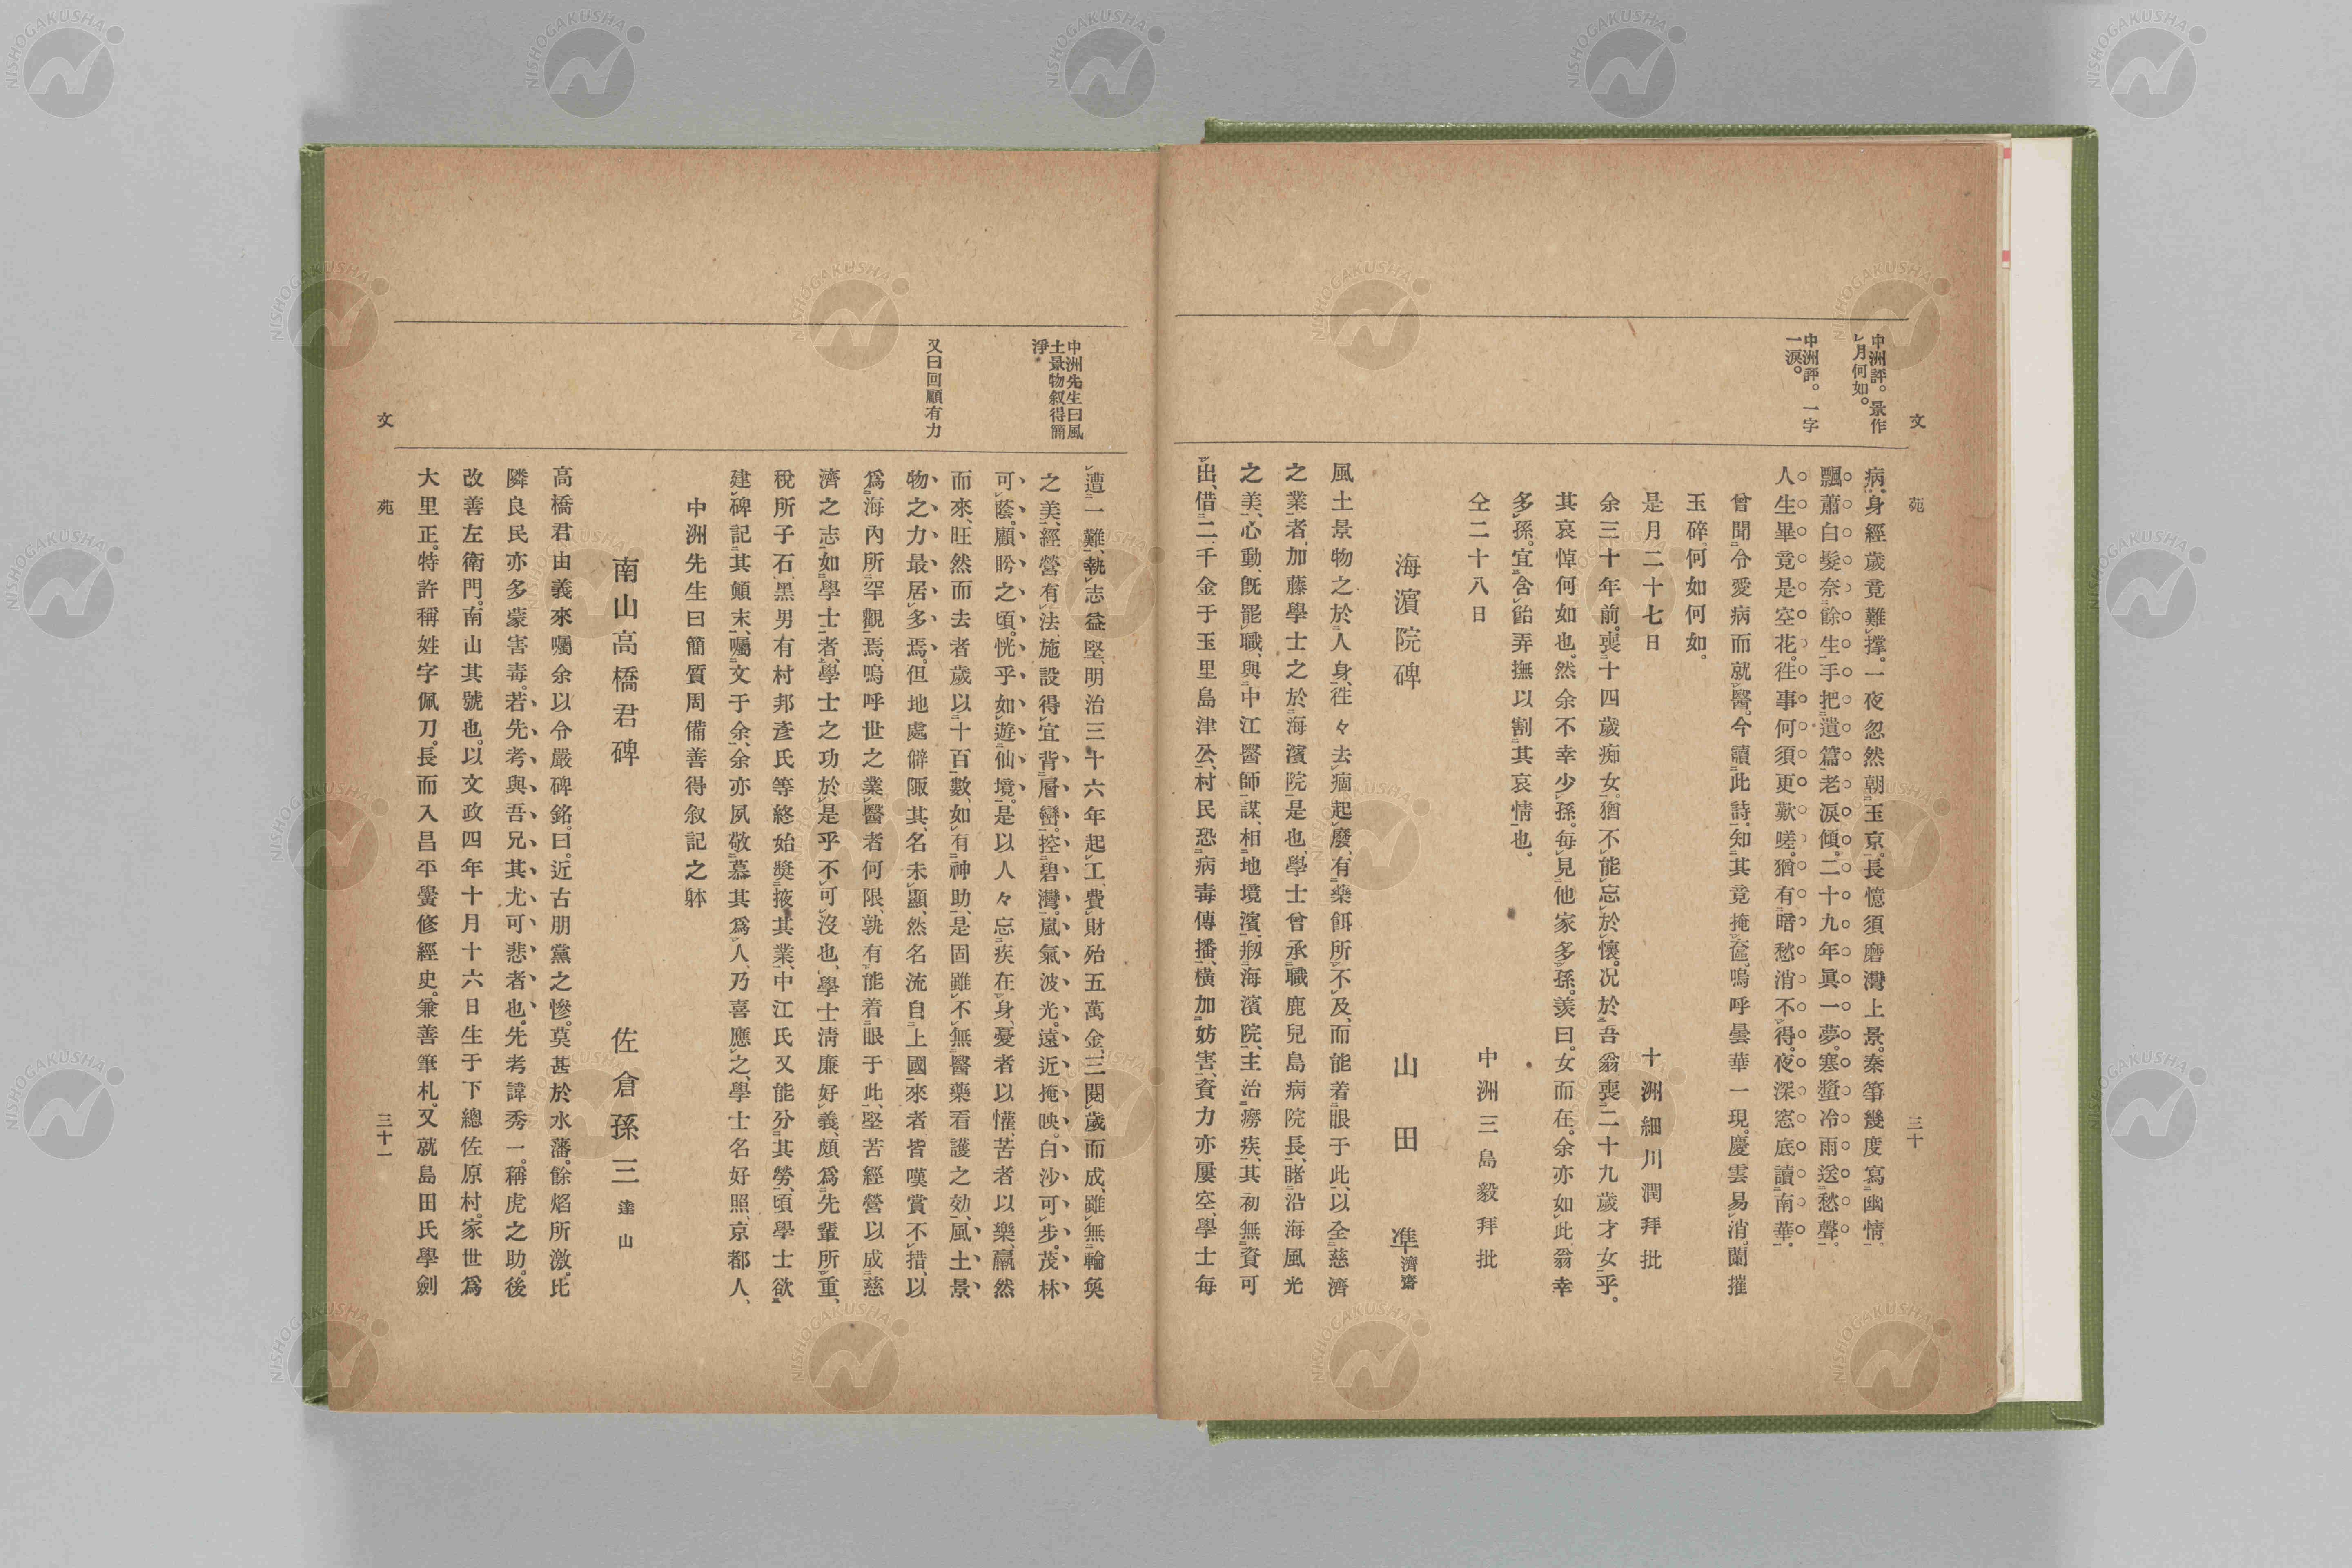 文苑 三十
中洲評。景作
月何如。
中洲評。一字
一淚。
病。身經歲竟難撑。一夜忽然朝玉京。長憶須磨灣上景。秦箏幾度寫幽情。
飄蕭白髮奈餘生。手把遺篇老淚傾。二十九年眞一夢。寒螿冷雨送愁聲。
人生畢竟是空花。徃事何須更歎嗟。猶有暗愁消不得。夜深窓底讀南華。
曾聞令愛病而就醫。今讀此詩。知其竟掩。嗚呼曇華一現。慶雲易消。蘭摧
玉碎、何如何如。
是月二十七日 十洲細川潤拜批
余三十年前。喪十四歲痴女。猶不能忘於懷。况於吾翁喪二十九歲才女乎。
其哀悼何如也。然余不幸少孫。每見他家多孫。羨曰。女而在。余亦如此、翁幸
多孫。宜含飴弄撫以割其哀情也。
仝二十八日 中洲三島毅拜批
海濱院碑 山田準 濟齋
風土景物之於人身、徃々去痼起廢、有藥餌所不及、而能着眼于此、以全慈濟
之業者、加藤學士之於海濱院是也、學士曾承職鹿兒島病院長、睹沿海風光
之美、心動、旣罷職、與中江醫師謀、相地境濱、剏海濱院、主治癆疾、其初無資可
出、借二千金于玉里島津公、村民恐病毒傳播、橫加妨害、資力亦屢空、學士每
中洲先生曰風
土景物叙得簡
淨。
又曰回顧有力
遭一難、執志益堅、明治三十六年起工、費財殆五萬金、三閱歲而成、雖無輪奐
之美、經營有法、施設得宜、背層巒。控碧灣。嵐氣波光。遠近掩映。白沙可步。茂林
可蔭。顧盻之頃。恍乎如遊仙境。是以人々忘疾在身、憂者以懽、苦者以樂、羸然
而來、旺然而去者歲以十百數、如有神助、是固雖不無醫藥看護之効、風土景
物之力最居多焉。但地處僻陬其名未顯、然名流自上國來者皆嘆賞不措、以
爲海內所罕觀焉、嗚呼世之業醫者何限、孰有能着眼于此、堅苦經營以成慈
濟之志、如學士者、學士之功於是乎不可沒也、學士淸廉好義、頗爲先輩所重、
稅所子石、黑男有村邦彥氏等終始奬掖其業、中江氏又能分其勞、頃學士欲
建碑記其顛末、囑文于余、余亦夙敬慕其爲人、乃喜應之、學士名好照、京都人、
中洲先生曰簡質周備善得叙記之躰
南山高橋君碑 佐倉孫三 達山
高橋君由義來囑余以令嚴碑銘。曰。近古朋黨之慘。莫甚於水藩。餘焰所激。比
隣良民亦多蒙害毒。若先考與吾兄其尤可悲者也。先考諱秀一。稱虎之助。後
改善左衛門。南山其號也。以文政四年十月十六日生于下總佐原村。家世爲
大里正。特許稱姓字佩刀。長而入昌平黌修經史。兼善筆札。又就島田氏學劍
文苑 三十一
NISHOGAKUSHA